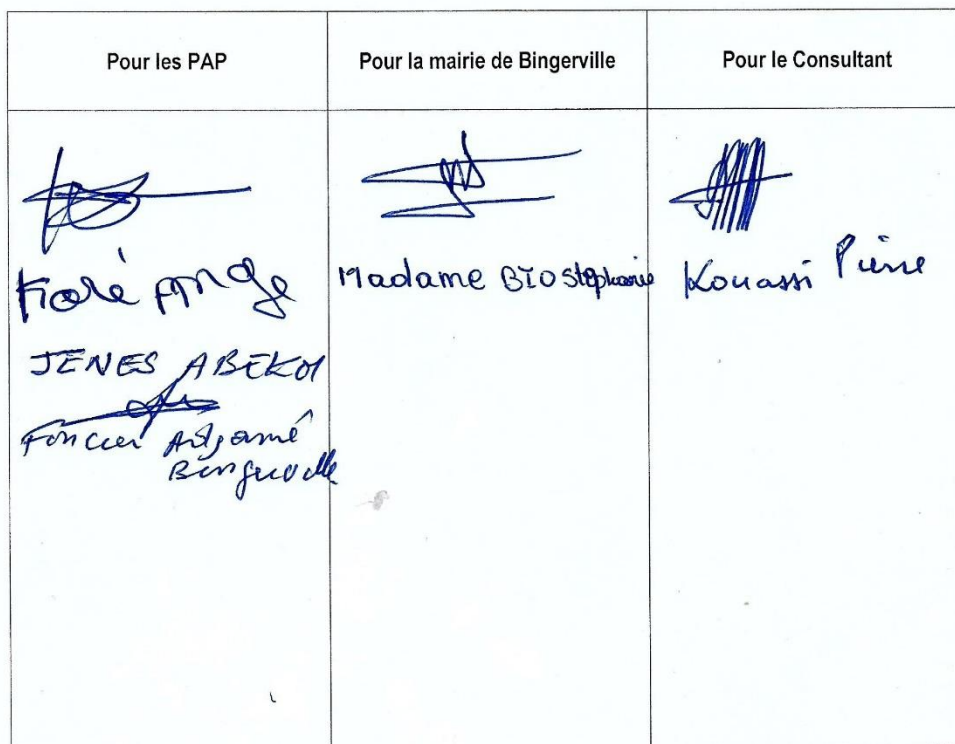 Pour les PAP
Pour la mairie de Bingerville
Pour le Consultant
Koré Ange
JENES ABEKOI
Foncier Adjamé
Bingerville
Madame BIO Stéphanie
Kouassi Pierre